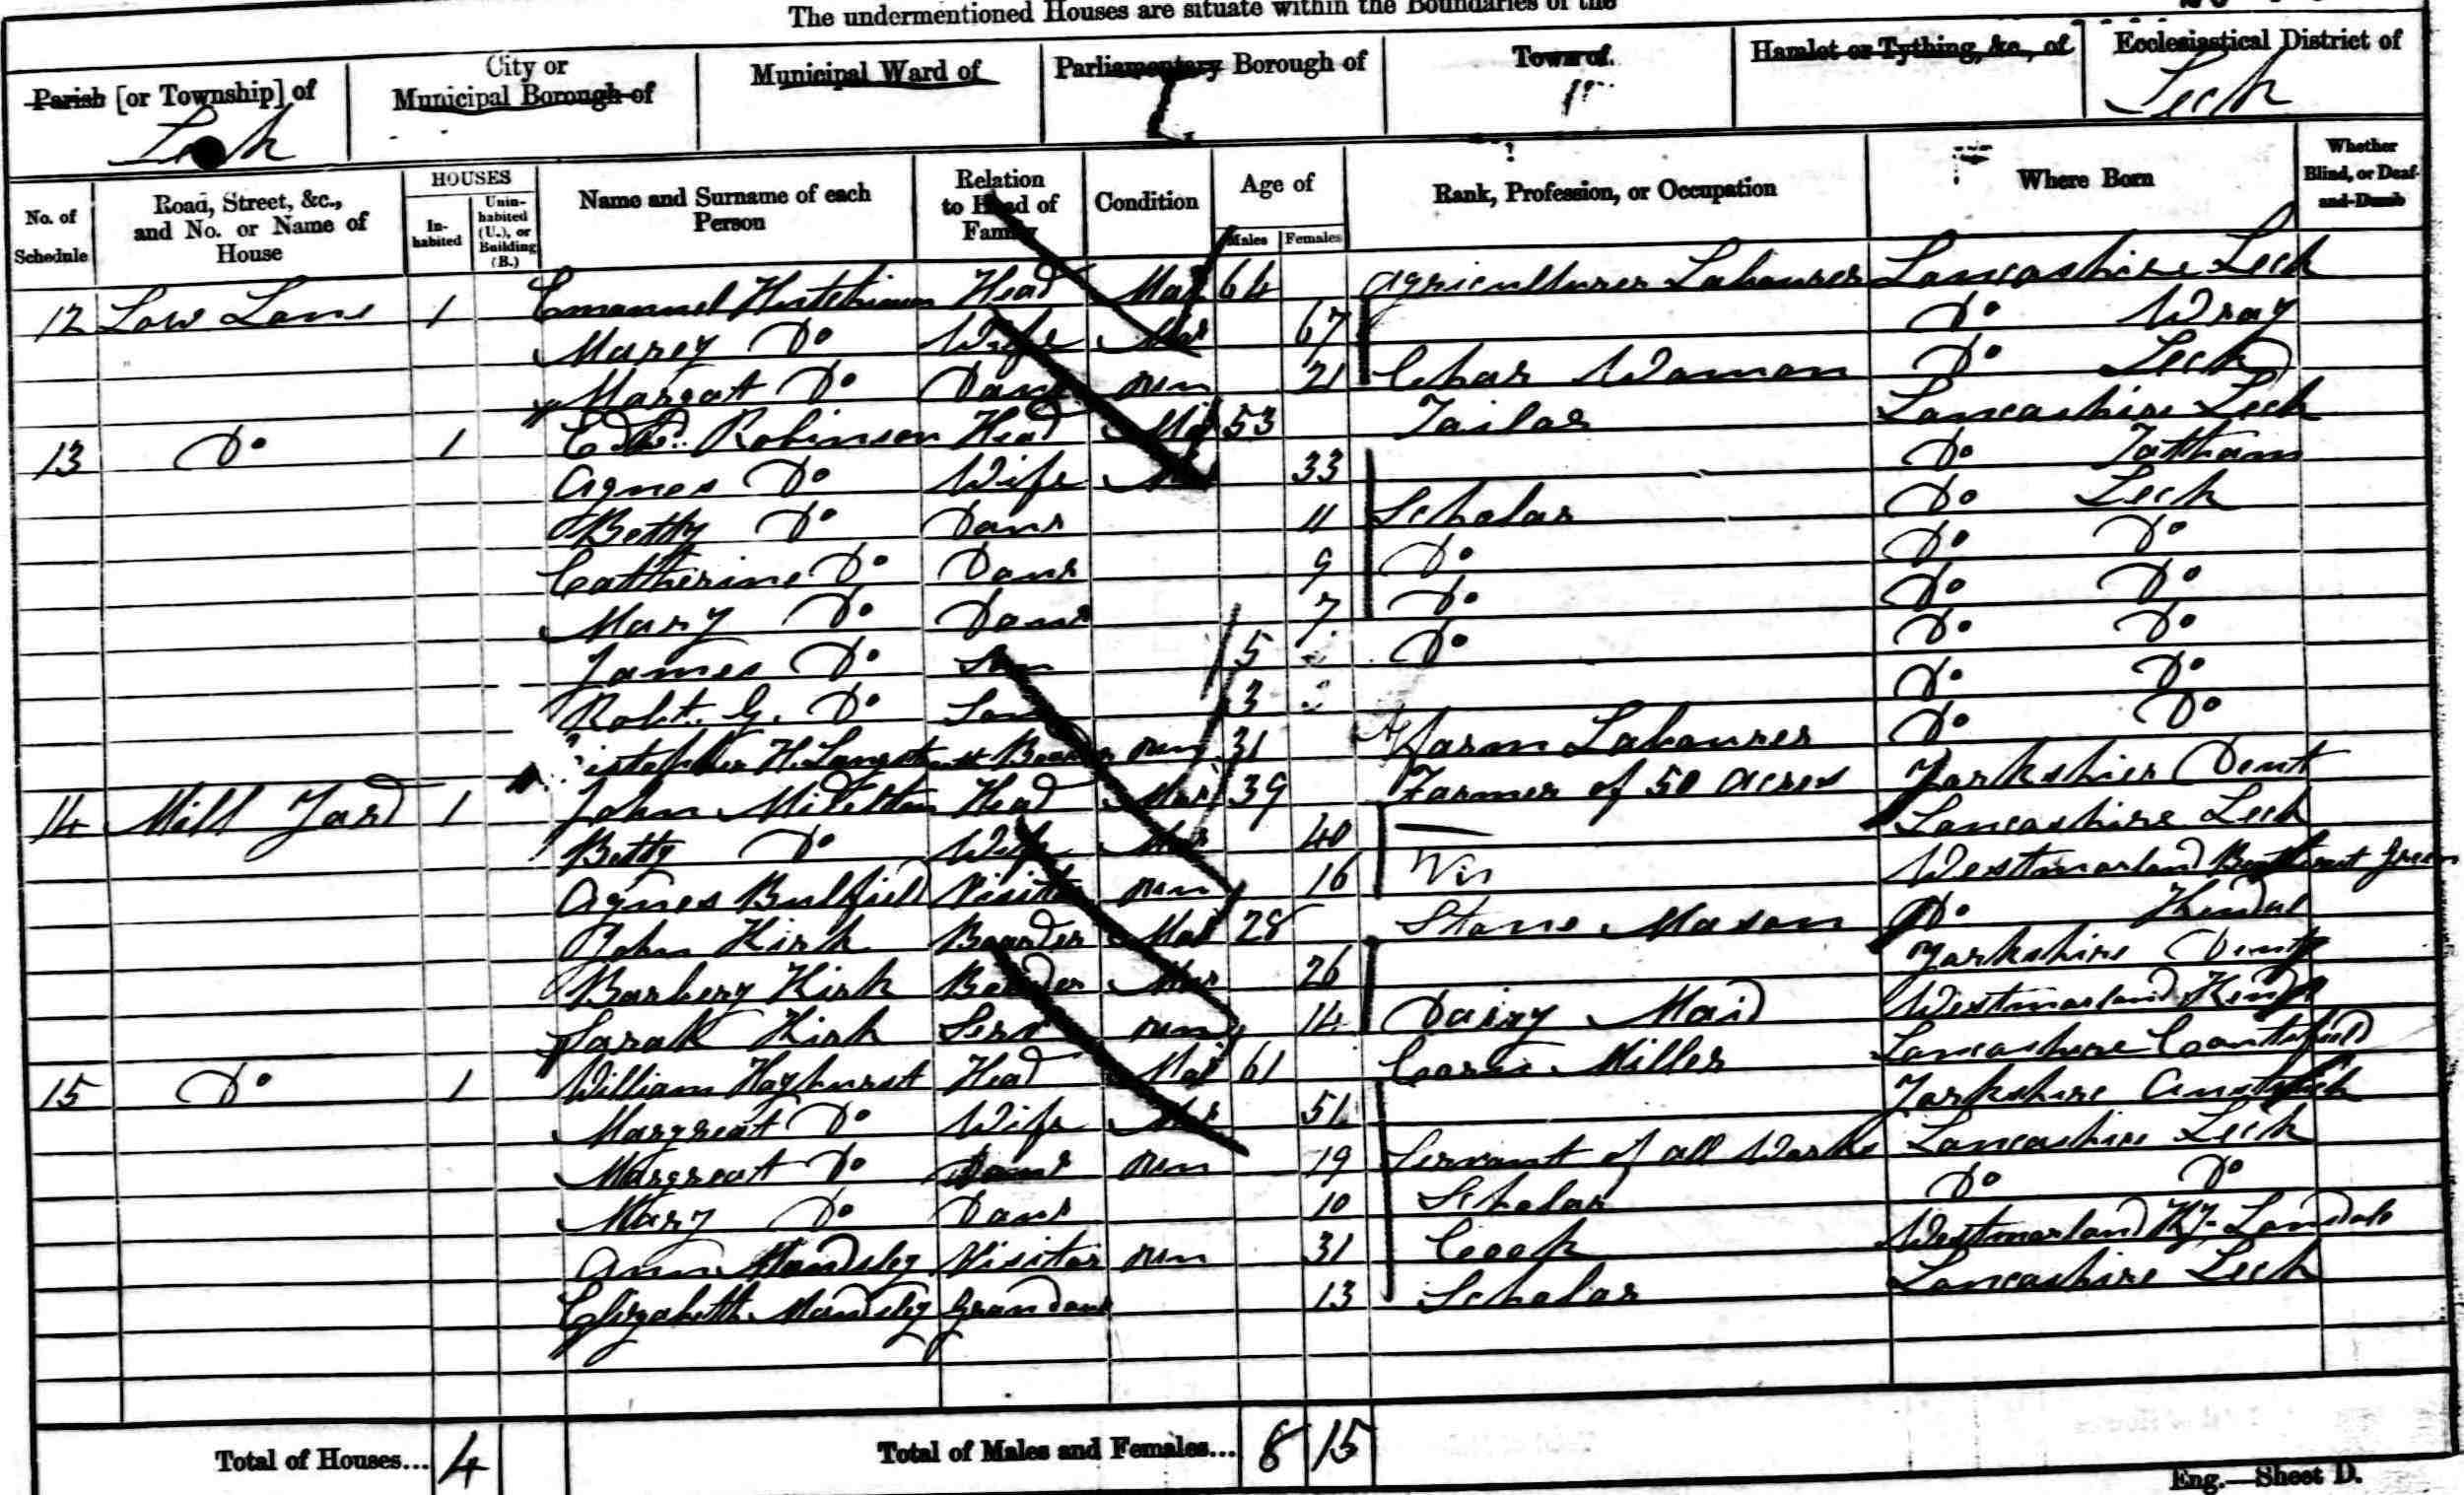 The undermentioned Houses are situate within the Boundaries of the
Parish [or Township] of
City or Municipal Borough of
Municipal Ward of
Parliamentary Borough of
Town of
Hamlet or Tything, &c., of
Ecclesiastical District of
Leck
Leck
No. of Schedule
Road, Street, &c., and No. or Name of House
HOUSES
In-habited
Unin-habited (U.), or Building (B.)
Name and Surname of each Person
Relation to Head of Family
Condition
Age of
Males
Females
Rank, Profession, or Occupation
Where Born
Whether Blind, or Deaf-and-Dumb
12 Low Lane 1 Emanuel Hutchinson Head Mar 64 Agriculturer Labourer Lancashire Leck
Marey Do Wife Mar 67 Do Wray
Margat Do Daur Unm 21 Char Woman Do Leck
13 Do 1 Robinson Head Mar 53 Tailor Lancashire Leck
Agnes Do Wife Mar 33 Do Tatham
Betty Do Daur 11 Scholar Do Leck
Catherine Do Daur 9 Do Do Do
Mary Do Daur 7 Do Do Do
James Do Son 5 Do Do Do
Robt. G. Do Son 3 Do Do
H. Boarder Unm 31 Farm Labourer Do Do
14 Mill Yard 1 John Head Mar 39 Farmer of 50 acres Yorkshier Dent
Betty Do Wife Mar 40 Lancashire Leck
Agnes Bulfield Visitor Unm 16 Westmorland Green
John Kirk Boarder Mar 28 Stone Mason Do Kendal
Barbery Kirk Boarder Mar 26 Yorkshire Dent
Sarah Kirk Serv Unm 14 Dairy Maid Westmorland Kendal
15 Do 1 William Hayhurst Head Mar 61 Corn Miller Lancashire Cantsfield
Margreat Do Wife Mar 51 Yorkshire Austwick
Margreat Do Daur Unm 19 Servant of all Works Lancashire Leck
Mary Do Daur 10 Scholar Do Do
Ann Mandsley Visitor Unm 31 Cook Westmorland Ky. Lonsdale
Elizabeth Mandsley Grandaur 13 Scholar Lancashire Leck
Total of Houses... 4
Total of Males and Females... 8 15
Eng.—Sheet D.